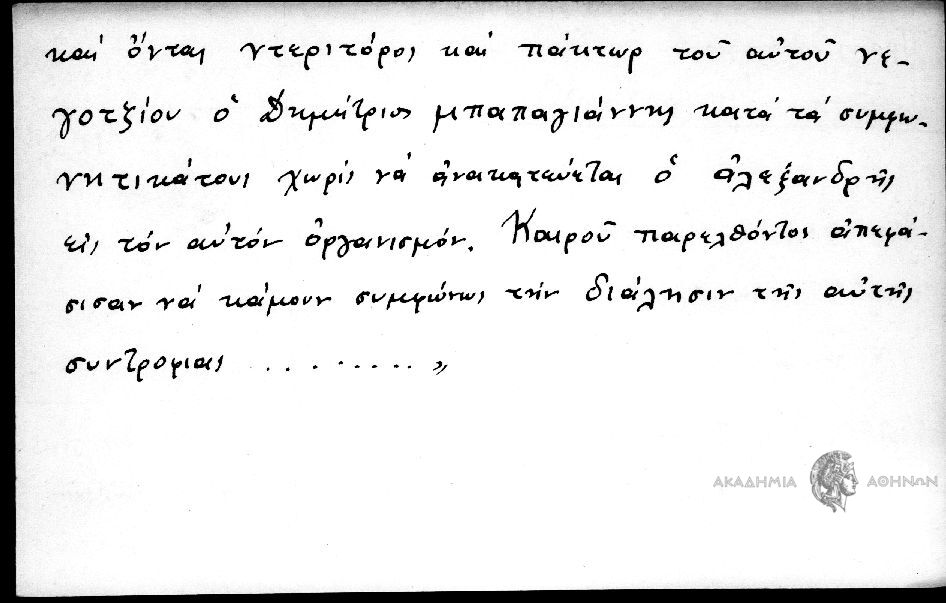 καί ὄντας ντεριτόρος καί πάκτωρ τοῦ αὐτοῦ νε-
γοτξίου ὁ Δημήτριος μπαπαγιάννης κατά τά συμφω-
νητικάτους χωρίς νά ἀνακατεύεται ὁ ἀλεξανδρῆς
εἰς τόν αὐτόν ὀργανισμόν. Καιροῦ παρελθόντος ἀπεφά-
σισαν νά κάμουν συμφώνως τήν διάλησιν τῆς αὐτῆς
συντροφιας ......... „
ΑΚΑΔΗΜΙΑ ΑΘΗΝΩΝ